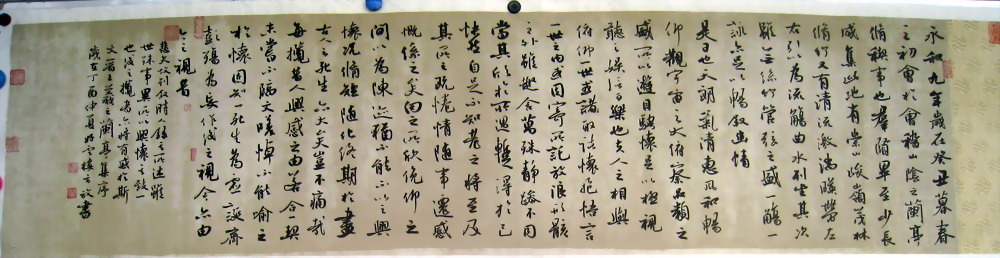 永和九年歲在癸丑暮春
之初會於會稽山陰之蘭亭
脩稧事也羣賢畢至少長
咸集此地有崇山峻嶺茂林
脩竹又有清流激湍暎帶左
右引以為流觴曲水列坐其次
雖無絲竹管弦之盛一觴一
詠亦足以暢敘幽情
是日也天朗氣清惠風和暢
仰觀宇宙之大俯察品類之
盛所以遊目騁懷足以極視
聽之娛信可樂也夫人之相與
俯仰一世或取諸懷抱悟言
一室之內或因寄所託放浪形骸
之外雖趣舍萬殊靜躁不同
當其欣於所遇蹔得於己
快然自足不知老之將至及
其所之既惓情隨事遷感
慨係之矣向之所欣俛仰之
間以為陳迹猶不能不以之興
懷況脩短隨化終期於盡
古人云死生亦大矣豈不痛哉
每攬昔人興感之由若合一契
未嘗不臨文嗟悼不能喻之
於懷固知一死生為虛誕齊
彭殤為妄作後之視今亦由
今之視昔
悲夫故列敘時人錄其所述雖
世殊事異所以興懷其致
一也後之攬者亦將有感於斯
文右王羲之蘭亭集序
歲丁酉仲夏書